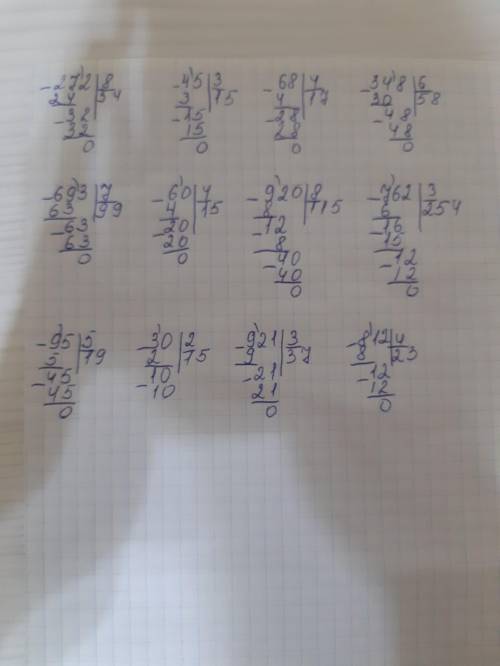 -272|8 -45|3 -68|4 -348|6
24 34 3 15 4 17 30 58
-32 -15 -28 -48
32 15 28 48
0 0 0 0
-693|7 -60|4 -920|8 -762|3
63 99 4 15 8 115 6 254
-63 -20 -12 -16
63 20 8 15
0 0 -40 -12
40 12
0 0
-95|5 -30|2 -921|3 -812|4
5 19 2 15 9 37 8 23
-45 -10 -21 -12
45 10 21 12
0 0 0